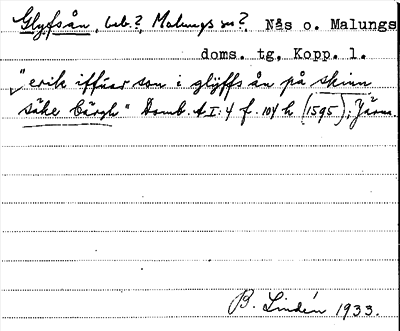 Glyfsån, beb.?, Malungs sn?. Nås o. Malungs
doms. tg, Kopp. l.
"erik iffuar son i glyffs ån på skinn
säke bärgh" Domb. A I:4 f. 104 h (1595); Järn.
B. Lindén 1933.